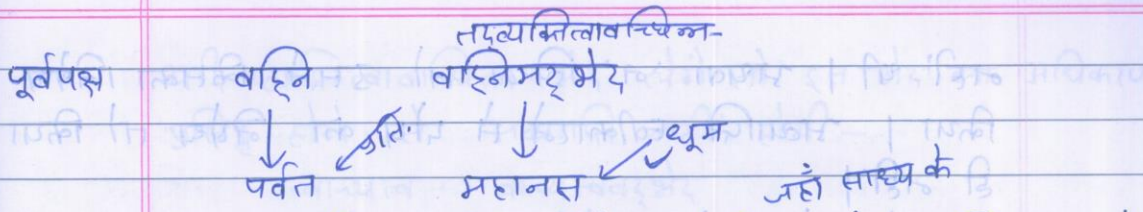 तद्व्यक्तित्वावच्छिन्न-
पूर्वपक्ष वह्नि वह्निमद्भेद
धूम
पर्वत महानस जहाँ साध्य के